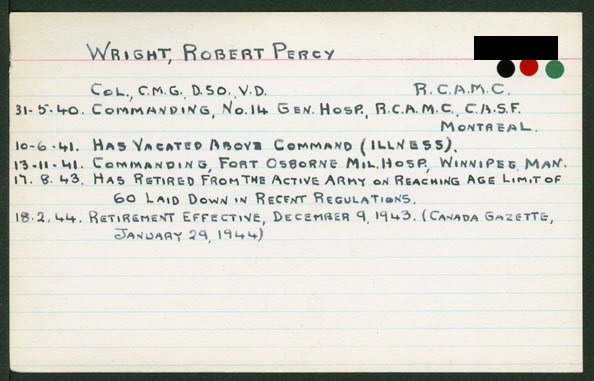 WRIGHT, ROBERT PERCY
COL., C.M.G., D.S.O., V.D. R.C.A.M.C.
31-5-40. COMMANDING, NO.14 GEN. HOSP., R.C.A.M.C., C.A.S.F.
MONTREAL.
10-6-41. HAS VACATED ABOVE COMMAND (ILLNESS).
13-11-41. COMMANDING, FORT OSBORNE MIL. HOSP., WINNIPEG, MAN.
17. 8. 43. HAS RETIRED FROM THE ACTIVE ARMY ON REACHING AGE LIMIT OF
60 LAID DOWN IN RECENT REGULATIONS.
18.2.44. RETIREMENT EFFECTIVE, DECEMBER 9, 1943. (CANADA GAZETTE,
JANUARY 29, 1944)